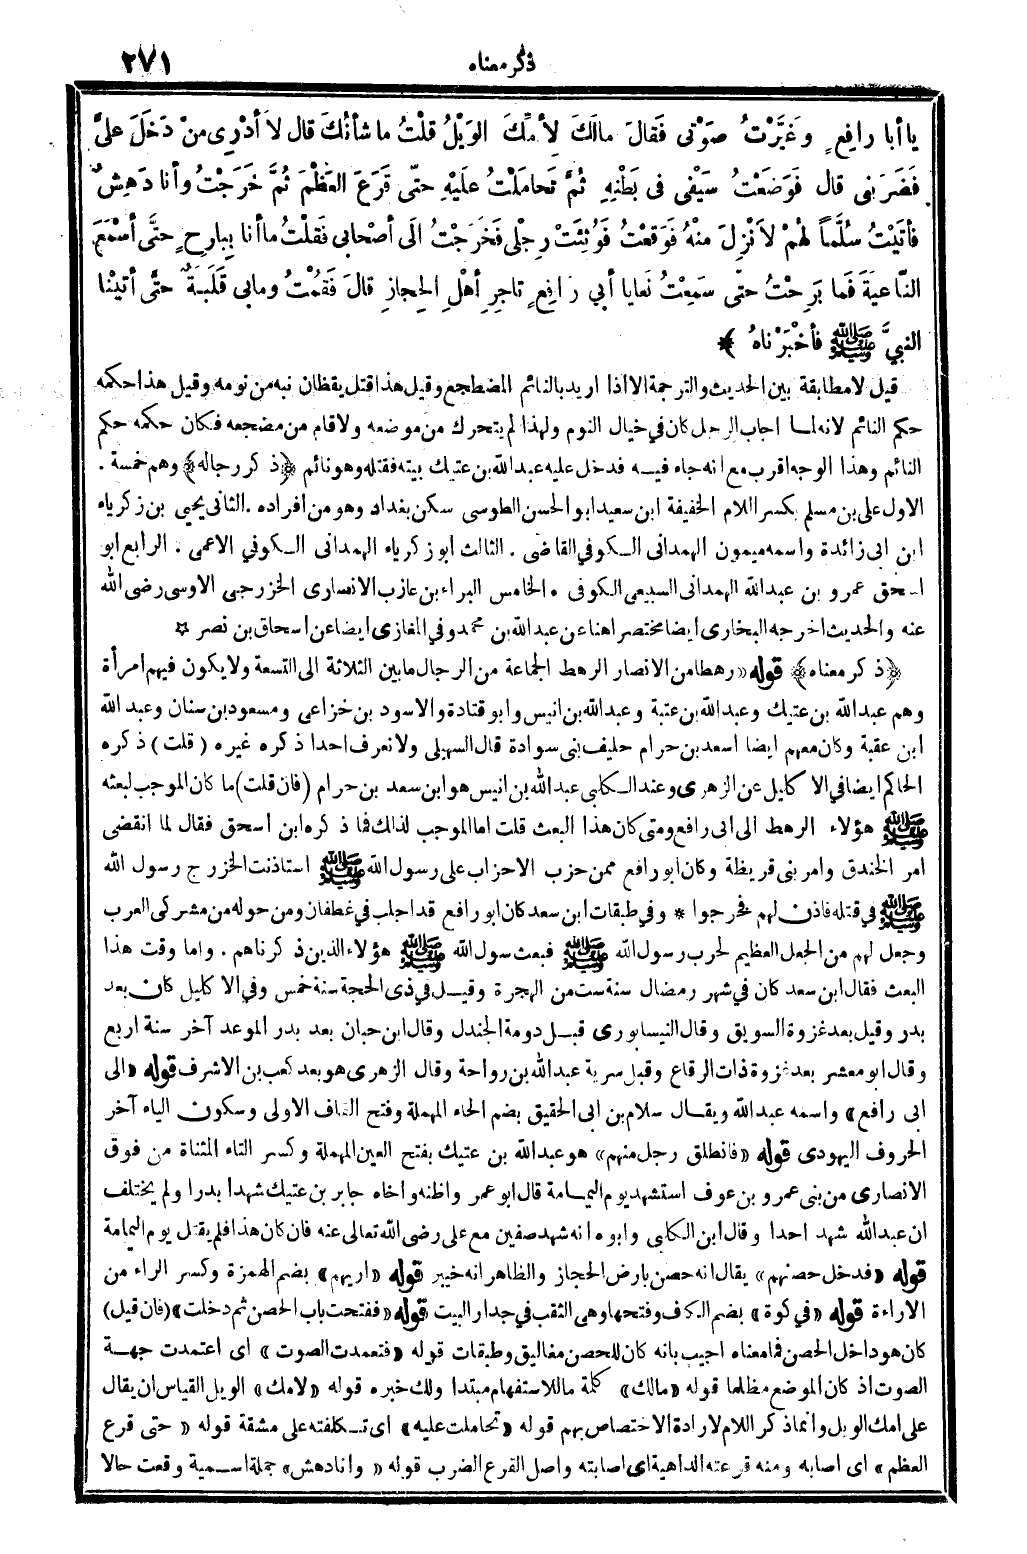 ذكر معناه ٢٧١
يا أبا رافِعٍ وغَيَّرْتُ صَوْتِى فَقالَ مالَكَ لِأُمِّكَ الوَيْلُ قلْتُ ما شأنُكَ قال لاَ أدْرِى مِنْ دَخَلَ علىَّ
فَضَرَبنِى قال فَوَضَعْتُ سَيْفِى فى بَطْنِهِ ثُمَّ تَحامَلْتُ علَيْهِ حتّى قَرَعَ العَظْمَ ثُمَّ خَرَجْتُ وأنا دَهِشٌ
فأتَيْتُ سُلَّماً لهُمْ لأَنْزِلَ مِنْهُ فَوَقعْتُ فَوُثِئَتْ رِجْلِى فَخَرَجْتُ الَى أصْحابى فَقلْتُ ما أنا بِبارِحٍ حتَّى أسْمَعَ
النّاعِيَةَ فَما بَرِحْتُ حتّى سَمِعْتُ نَعايا أبي رَافِعٍ تاجِرِ أهْلِ الحِجازِ قالَ فَقُمْتُ وما بى قَلَبَةٌ حتَّى أتَيْنا
النبيَّ ﷺ فأخْبَرْناهُ ﴾
قيل لا مطابقة بين الحديث والترجمة الا اذا اريد بالنائم المضطجع وقيل هذا قتل يقظان نبه من نومه وقيل هذا حكمه
حكم النائم لانه لما اجاب الرجل كان في خيال النوم ولهذا لم يتحرك من موضعه ولا قام من مضجعه فكان حكمه حكم
النائم وهذا الوجه اقرب مع انه جاء فيه فدخل عليه عبدالله بن عتيك بيته فقتله وهو نائم ﴿ ذكر رجاله ﴾ وهم خمسة .
الاول على بن مسلم بكسر اللام الخفيفة ابن سعيد ابو الحسن الطوسى سكن بغداد وهو من افراده . الثانى يحيى بن زكرياء
ابن ابى زائدة واسمه ميمون الهمدانى الكوفي القاضى . الثالث ابو زكرياء الهمدانى الكوفي الاعمى . الرابع ابو
اسحق عمرو بن عبدالله الهمدانى السبيعى الكوفى . الخامس البراء بن عازب الانصارى الخزرجى الاوسى رضى الله
عنه والحديث اخرجه البخارى ايضا مختصرا هنا عن عبدالله بن محمد وفي المغازى ايضا عن اسحاق بن نصر ☆
﴿ ذكر معناه ﴾ قوله « رهطا من الانصار الرهط الجماعة من الرجال ما بين الثلاثة الى التسعة ولا يكون فيهم امرأة
وهم عبدالله بن عتيك وعبدالله بن عتبة وعبدالله بن انيس وابو قتادة والاسود بن خزاعى ومسعود بن سنان وعبد الله
ابن عقبة وكان معهم ايضا اسعد بن حرام حليف بنى سوادة قال السهيلى ولا نعرف احدا ذكره غيره ( قلت ) ذكره
الحاكم ايضا في الاكليل عن الزهرى وعند الكلبى عبدالله بن انيس هو ابن سعد بن حرام ( فان قلت ) ما كان الموجب لبعثه
ﷺ هؤلاء الرهط الى ابى رافع ومتى كان هذا البعث قلت اما الموجب لذلك فما ذكره ابن اسحق فقال لما انقضى
امر الخندق وامر بنى قريظة وكان ابو رافع ممن حزب الاحزاب على رسول الله ﷺ استاذنت الخزرج رسول الله
ﷺ في قتله فاذن لهم فخرجوا * وفي طبقات ابن سعد كان ابو رافع قد اجلب في غطفان ومن حوله من مشركى العرب
وجعل لهم من الجعل العظيم لحرب رسول الله ﷺ فبعث سول الله ﷺ هؤلاء الذين ذكرناهم . واما وقت هذا
البعث فقال ابن سعد كان في شهر رمضان سنة ست من الهجرة وقيل في ذى الحجة سنة خمس وفي الاكليل كان بعد
بدر وقيل بعد غزوة السويق وقال النيسابورى قبل دومة الجندل وقال ابن حبان بعد بدر الموعد آخر سنة اربع
وقال ابو معشر بعد غزوة ذات الرقاع وقبل سرية عبدالله بن رواحة وقال الزهرى هو بعد كعب بن الاشرف قوله « الى
ابى رافع » واسمه عبدالله ويقال سلام بن ابى الحقيق بضم الحاء المهملة وفتح القاف الاولى وسكون الياء آخر
الحروف اليهودى قوله « فانطلق رجل منهم » هو عبدالله بن عتيك بفتح العين المهملة وكسر التاء المثناة من فوق
الانصارى من بنى عمرو بن عوف استشهد يوم اليمامة قال ابو عمر واظنه واخاه جابر بن عتيك شهدا بدرا ولم يختلف
ان عبدالله شهد احدا وقال ابن الكلبى وابوه انه شهد صفين مع على رضى الله تعالى عنه فان كان هذا فلم يقتل يوم اليمامة
قوله « فدخل حصنهم » يقال انه حصن بارض الحجاز والظاهر انه خيبر قوله « اريهم » بضم الهمزة وكسر الراء من
الاراءة قوله « في كوة » بضم الكاف وفتحها وهى الثقب في جدار البيت قوله « ففتحت باب الحصن ثم دخلت » ( فان قيل )
كان هو داخل الحصن فما معناه اجيب بانه كان للحصن مغاليق وطبقات قوله « فتعمدت الصوت » اى اعتمدت جهة
الصوت اذ كان الموضع مظلما قوله « مالك » كلمة ما للاستفهام مبتدا ولك خبره قوله « لامك » الويل القياس ان يقال
على امك الويل وانما ذكر اللام لارادة الاختصاص بهم قوله « تحاملت عليه » اى تكلفته على مشقة قوله « حتى قرع
العظم » اى اصابه ومنه قرعته الداهية اى اصابته واصل القرع الضرب قوله « وانا دهش » جملة اسمية وقعت حالا